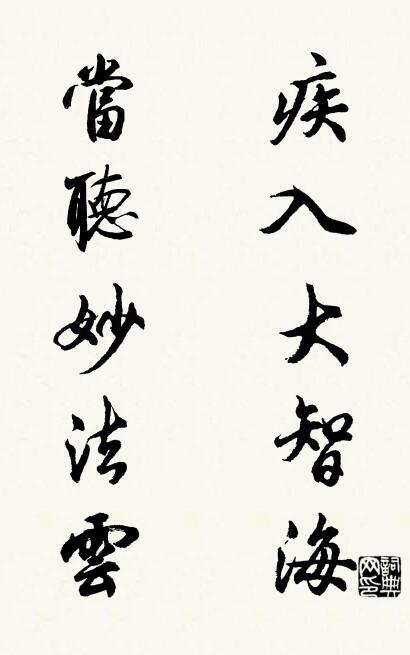 疾入大智海
當聽妙法雲
詞典網印